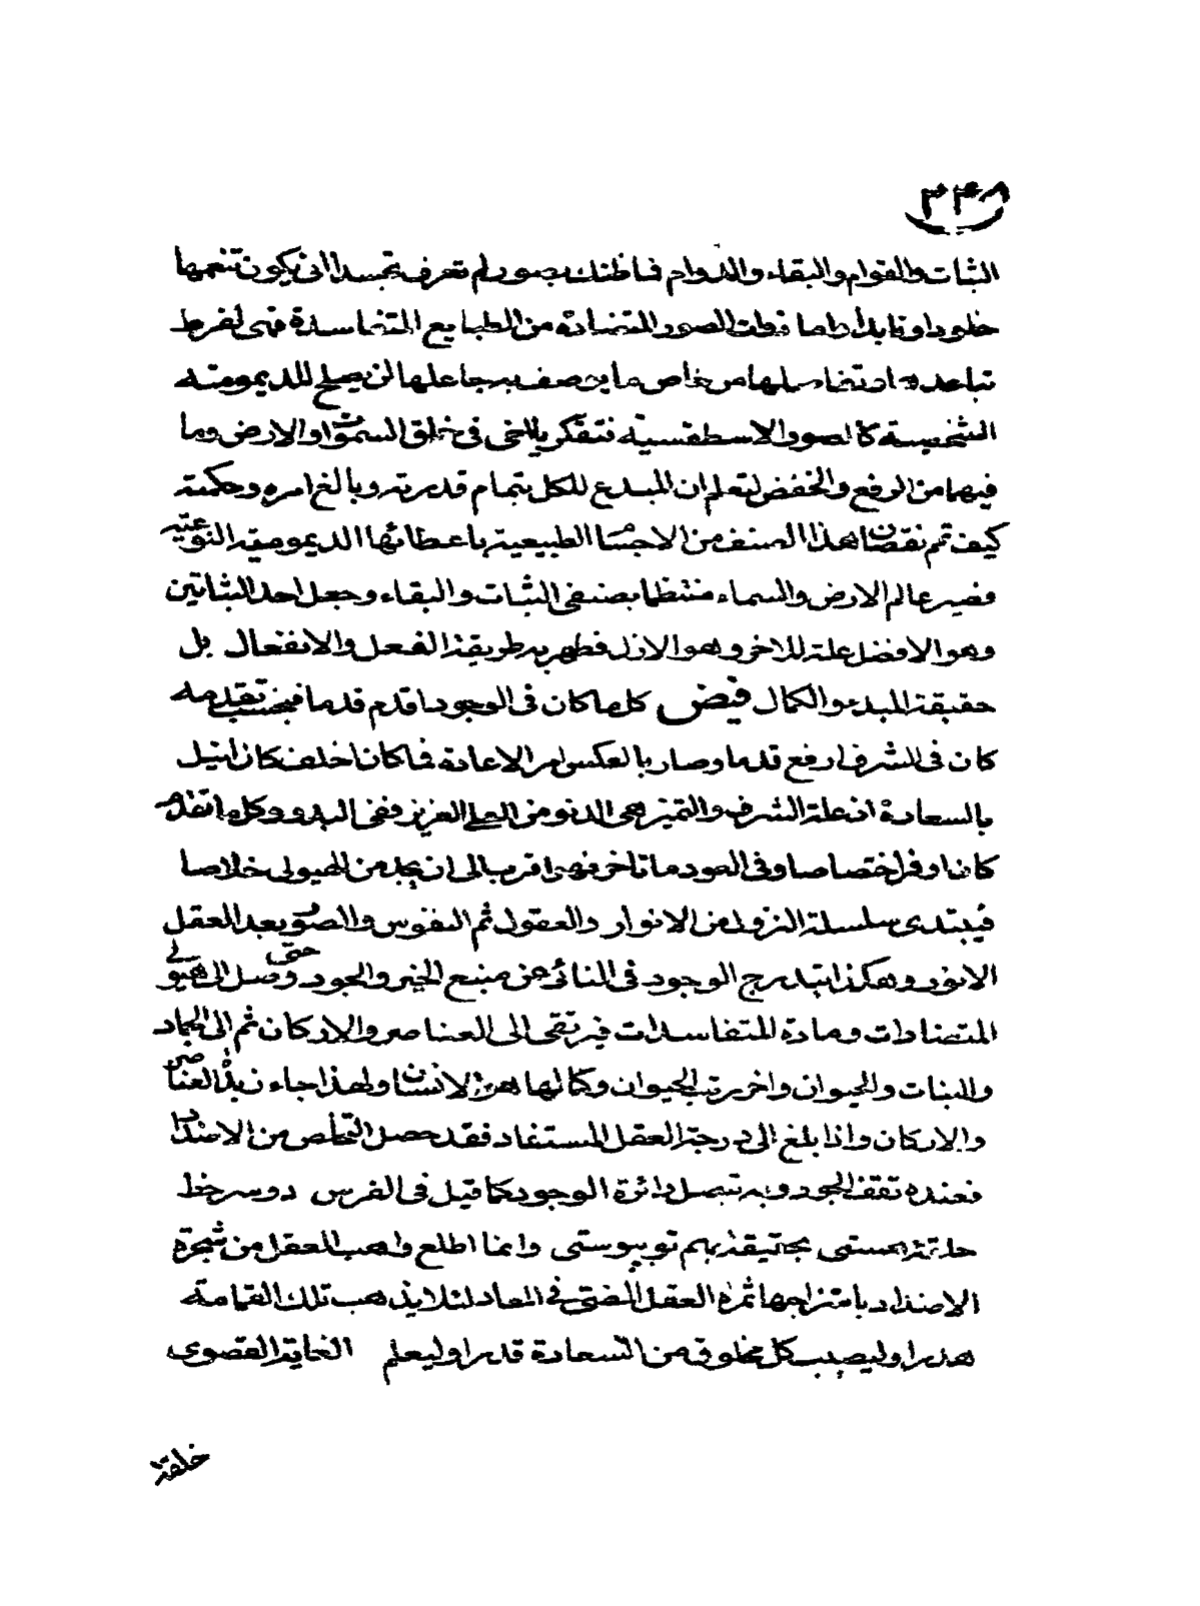 ٣٤٨
الثبات والقوام والبقاء والدوام فما ظنك بصور لم تعرف تجسدا انى يكون تنعمها
خلودا وتابدا واما ذوات الصور المتضادة من الطبايع المتفاسدة فهى لفرط
تباعدها وتفاسلها من خاص ما يتصف به جاعلها لن يصلح للديمومته
الشخصية كالصور الاسطقسيه فتفكر يا اخى فى خلق السموات والارض وما
فيهما من الرفع والخفض لتعلم ان المبدع للكل بتمام قدرته وبالغ امره وحكمته
كيف تمم نقصان هذا الصنف من الاجسا الطبيعية باعطائها الديمومية النوعيه
فصير عالم الارض والسماء منتظما بصنفى الثبات والبقاء وجعل احد الثباتين
وهو الافضل علة للاخر وهو الارذل فظهر به طريقة الفعل والانفعال بل
حقيقة المبدء والكمال فيض كلما كان فى الوجود اقدم قدما فبحسب تقدمه
كان فى الشرف ارفع قدما وصار بالعكس امر الاعادة فما كان اخلف كان انيل
بالسعادة اذ علة الشرف والتميز هى الدنو من العلى العزيز ففى البدو وكلما تقدم
كان اوفر اختصاصا وفى العود ما تاخر فهو اقرب الى ان يجد من الهيولى خلاصا
فيبتدى سلسلة النزول من الانوار والعقول ثم النفوس والصور بعد العقل
الانور وهكذا يتدرج الوجود فى النائى عن منبع الخير والجود حتى وصل الى هيولى
المتضادات ومادة المتفاسدات فيرتقى الى العناصر والاركان ثم الى الجماد
والنبات والحيوان واخر رتب الحيوان وكمالها هو الانسان ولهذا جاء زبدة العناصر
والاركان واذا بلغ الى درجة العقل المستفاد فقد حصل التخلص من الاضداد
فعنده تقف الجود وبه تتصل دائرة الوجود كما قيل فى الفرس دو سر خط
حلقهٔ هستى بحقيقة بهم تو پيوستى وانما اطلع واهب العقل من شجرة
الاضداد بامتزاجها ثمرة العقل المضى فى المعاد لئلا يذهب تلك القمامة
هدرا وليصيب كل مخلوق من السعادة قدرا وليعلم الغاية القصوى
خلقة